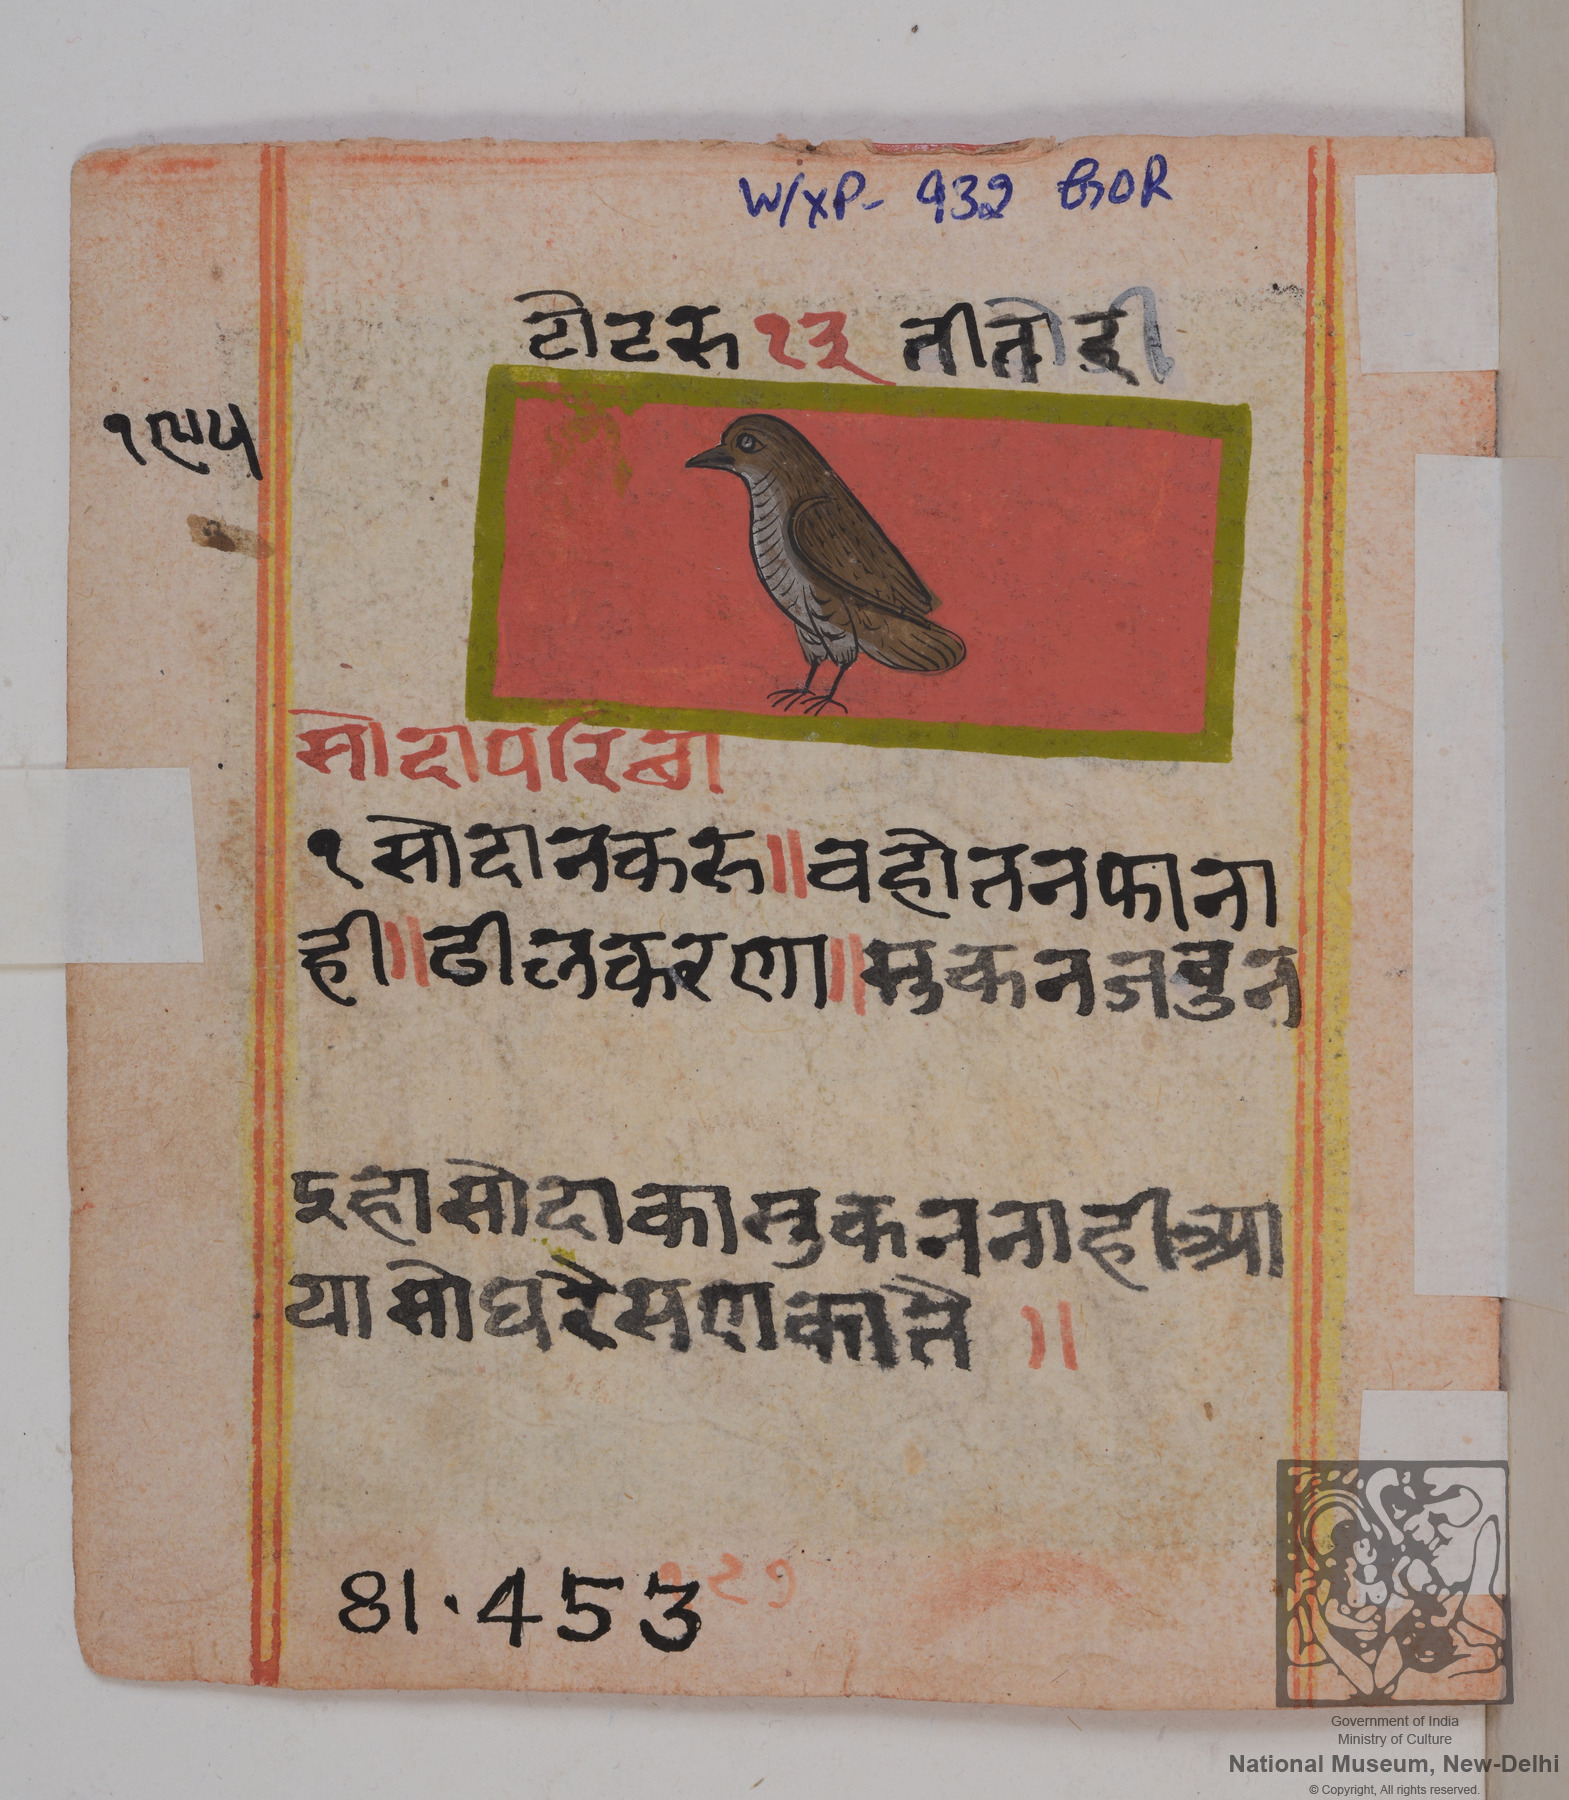 W/XP- 432 BOR
टोटरू १३ तीतोडी
सोदापरिछा
१ सोदानकरू॥वहोतनफाना
ही॥ढीलकरणा॥सुकनजबुन
इहासोदाकासुकननाहीआ
यासोघरेसणकाते ॥
81.453
१२७
Government of India
Ministry of Culture
National Museum, New-Delhi
© Copyright, All rights reserved.